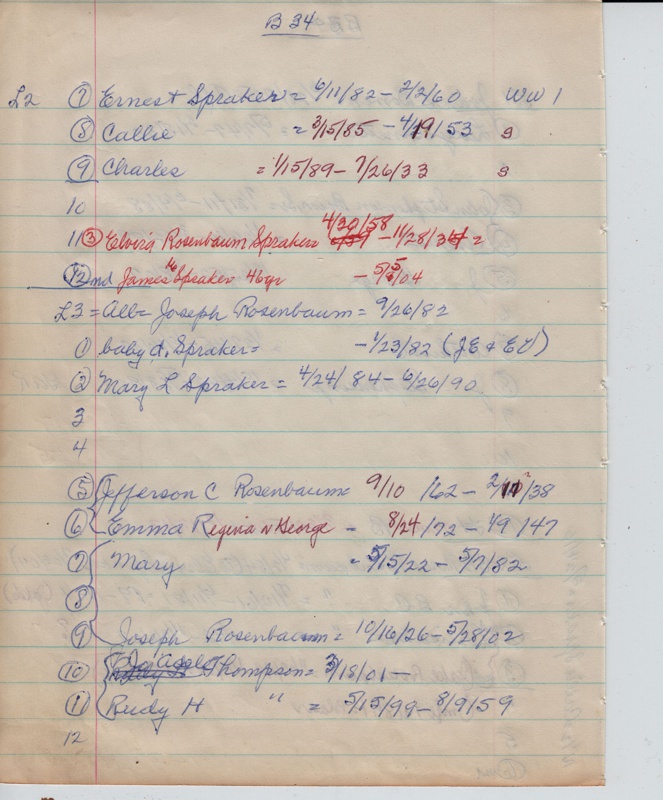 B 34
L2 7 Ernest Spraker = 6/11/82 - 2/2/60 WW 1
8 Callie = 3/15/85 - 4/19/53 s
9 Charles = 1/15/89 - 7/26/33 s
10
11 3 Elvira Rosenbaum Spraker = 4/30/58 - 11/28/34 =
12 nd James Spraker 46yr - 5/5/04
L3 = Alb= Joseph Rosenbaum = 9/26/82
1 baby d. Spraker = - 1/23/82 (JE & EV)
2 Mary L Spraker = 4/24/84 - 6/26/90
3
4
5 Jefferson C Rosenbaum = 9/10/62 - 2/11/38
6 Emma Regina n George - 8/24/72 - 1/9/47
7 Mary = 5/15/22 - 5/7/82
8
9 Joseph Rosenbaum = 10/16/26 - 5/28/02
10 Thompson = 3/18/01 -
11 Rudy H " = 5/15/99 - 8/9/59
12